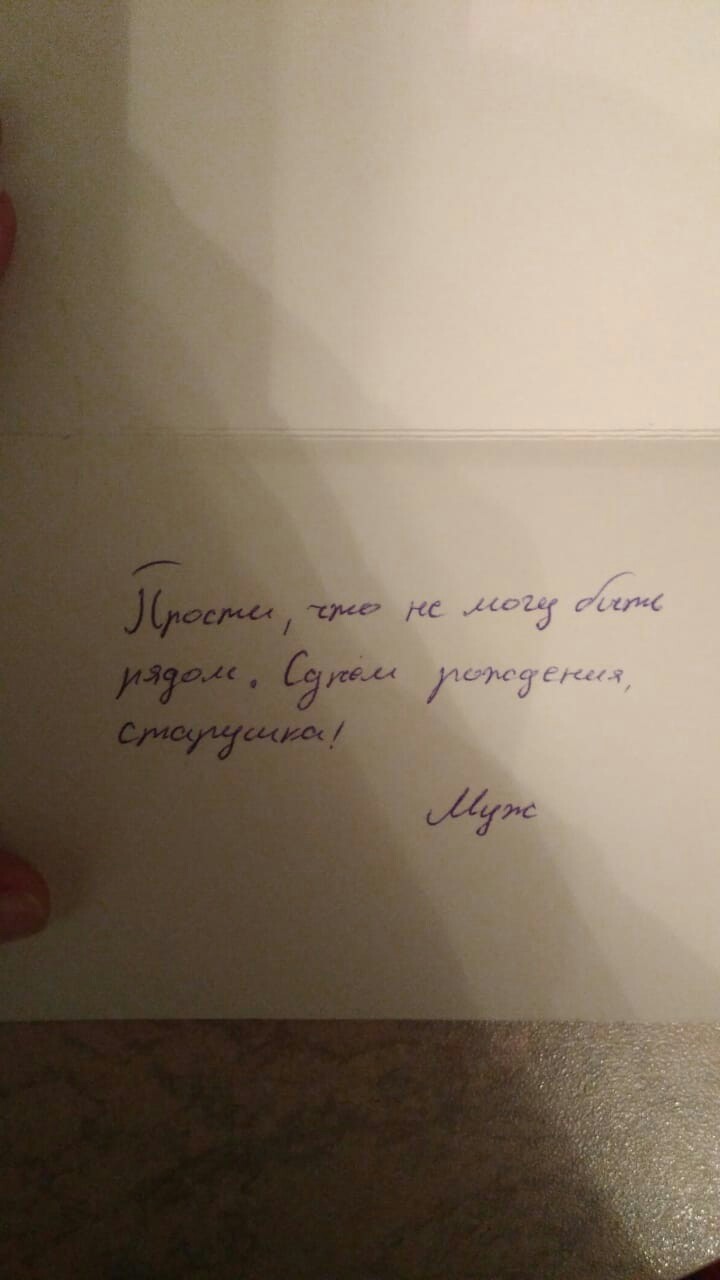 Прости, что не могу быть
рядом. С днём рождения,
старушка!
Муж